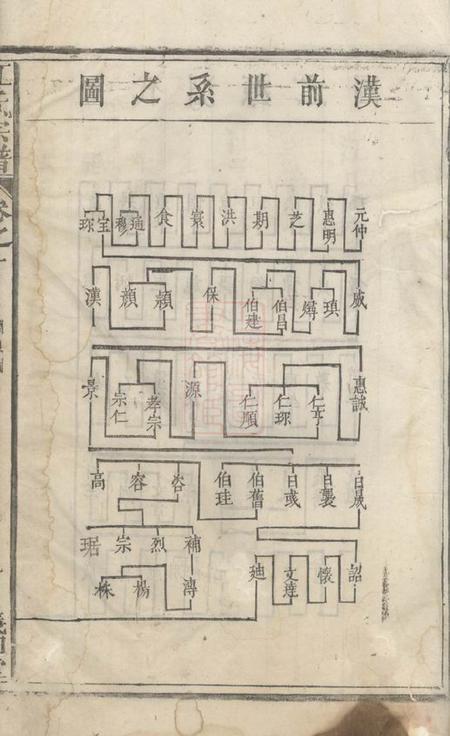 漢前世系之圖
元仲 惠明 芝 期 洪 寰 食 通 穆 宝 琮
威 瑱 伯昌 伯建 保 穎 顏 漢
惠誠 仁亨 仁琢 仁順 源 孝宗 宗仁 景
日晟 日襲 日彧 伯舊 伯珪 容 高
詔 懷 文達 廸 補 烈 宗 琚
溥 楊 株